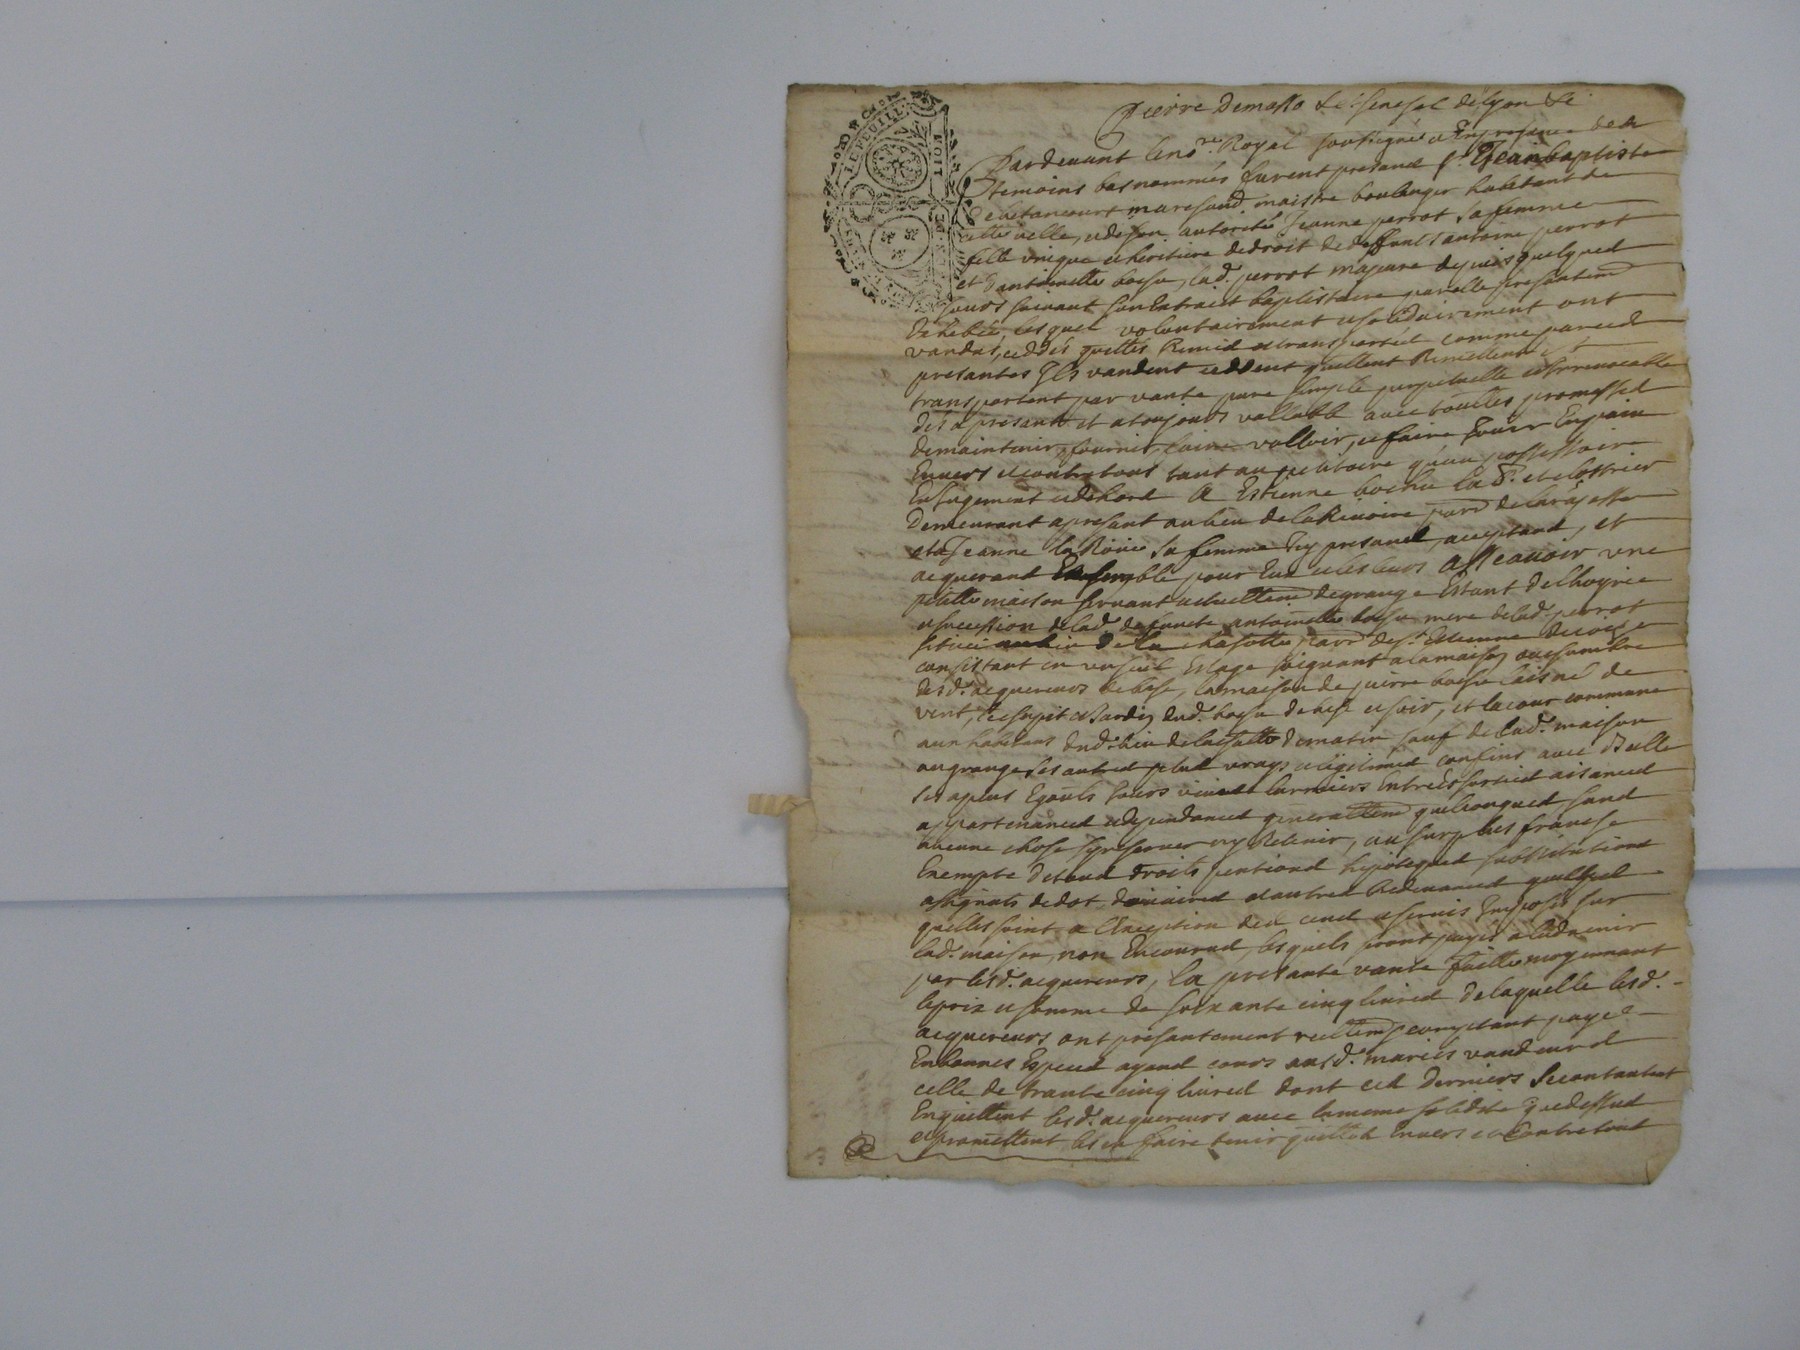 Pierre Demasso Le Senesal de lyon &c
LE FEUILL
Pardevant le nore. Royal soussigné et En presence de
temoins bas nommés furent presand Sr. Jean baptiste
marchand maistre boulanger habitant de
cette ville, et de son autorité Jeanne perrot sa femme
fille unique et heritiere de droit de deffunt antoine perrot
et d'antoinette bochu, lad. perrot majeure depuis quelques
jours suivant son Extraict baptistaire par elle presentem
Exhibée lesquel volontairement et solidairement ont
vandus, ceddés quittés Remid et transportéd comme par ced
presantes Ils vandent ceddent quittent Remettent et
transportent par vante pure simple perpetuelle et Irrevocable
dés a presant et a toujours vallable avec touttes promesses
de maintenir, fournir, faire valloir, et faire Jouir En paix
Envers et contre tous tant au petitoire qu'au possessoire
En Jugement et dehord A Estienne bochu
Demeurant a presant au lieu de la Riviore parr. de larajasse
et a Jeanne sa femme Icy presand, acceptand, et
acquerant Ensemble pour Eux et les leurs Asscavoir une
petitte maison servant actuellem de grange Estant de l'hoyrie
et succession de lad. defuncte antoinette bochu mere de lad. perrot
située au lieu de la chasotte parr. de St. Estienne
consistant en un seul Estage Joignant a la maison
desd. acquereurs de bize, la maison de pierre bochu laisné de
vent, le et Jardin dud. bochu de bize et soir, et la cour commune
aux habitans dud. lieu de de matin sauf de lad. maison
ou grange ses autres plus vrays et legitimes confins avec Icelle
ses apens Egouts Jours Entrées sorties aisances
appartenances et dependances generallem quelconques sans
aucune chose sy reserver ny Retenir, au surplus franche
Exempte de tous droits pentions hipoteques substitutions
assignats de dot douaires et autres Redevances quelles
quelles soint a l'Exception des cens et servis Imposés sur
lad. maison, non Encourus, lesquels seront payés a l'advenir
par lesd. acquereurs, La presante vante faitte moyennant
le prix et somme de soixante cinq livres de laquelle lesd.
acquereurs ont presantement reellem comptant payé
En bonnes Especes ayand cours ausd. mariés vandeurs
celle de trante cinq livres dont ces derniers se contantent
En quittent lesd. acquereurs avec la meme solidité que dessus
et promettent les en faire tenir quittes Envers et contre tous